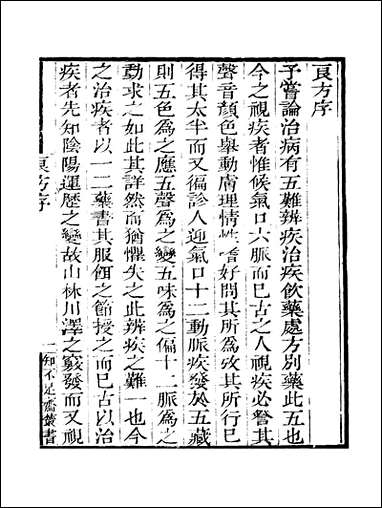 良方序
予嘗論治病有五難辨疾治疾飲藥處方別藥此五也
今之視疾者惟候氣口六脈而已古之人視疾必詧其
聲音顏色舉動膚理情性嗜好問其所為攷其所行已
得其太半而又徧診人迎氣口十二動脈疾發於五藏
則五色為之應五聲為之變五味為之偏十二脈為之
動求之如此其詳然而猶懼失之此辨疾之難一也今
之治疾者以一二藥書其服餌之節授之而已古以治
疾者先知陰陽運歷之變故山林川澤之竅發而又視
良方序
一
知不足齋叢書